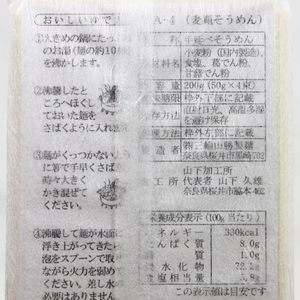 おいしいゆで
①大きめの鍋にたっ
のお湯(麺の約10
を沸かします。
②沸騰したと
ころへほぐし
ておいた麺を
さばくように入れ
③麺がくっつかない
に箸で手早くさば
時々大きく
かき混ぜて
ください。
④沸騰して麺が水面
浮き上がってきた
泡をスプーンで取
ながら火力を弱め
ください。差し水
必要はありません
A-4 (麦縄そうめん)
手延べそうめん
小麦粉(国内製造)、
食塩、葛でん粉、
甘藷でん粉
200g(50g×4束
枠外下部に記載
直射日光、高温多湿
を避けて保存
枠外左部に記載
製造者
奈良県桜井市箸崎702
山下加工所
工所 代表者 山下 久雄
奈良県桜井市脇本402
栄養成分表示(100g当たり)
エネルギー 330kcal
たんぱく質 8.0g
質 1.0g
水化物 72.2g
塩相当量 3.8g
この表示値は目安です